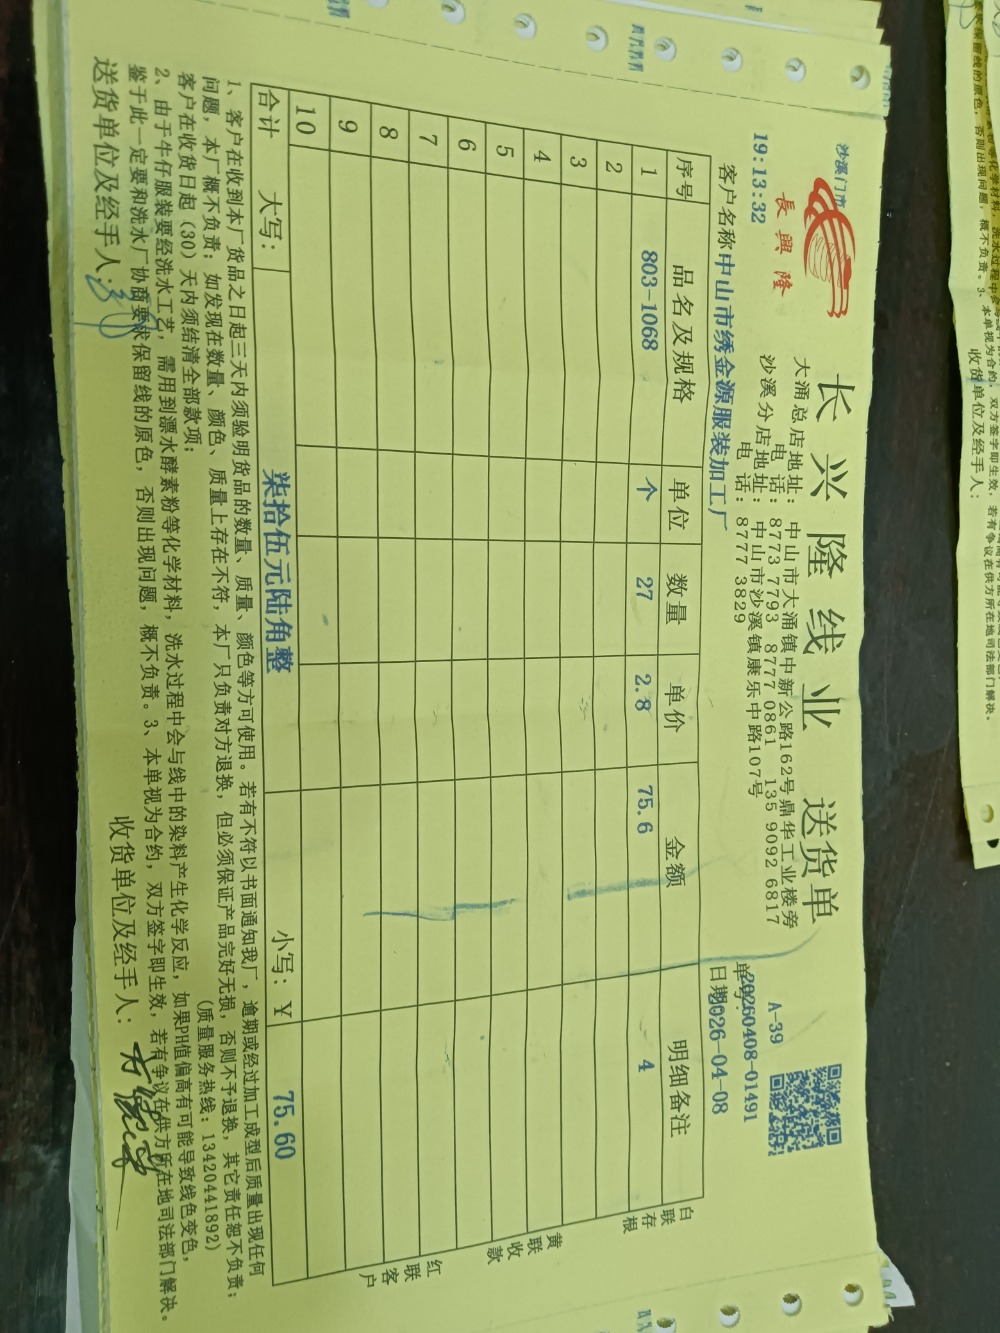 沙溪门市
長興隆
19:13:32
长兴隆线业 送货单
大涌总店地址: 中山市大涌镇中新公路162号鼎华工业楼旁
电话: 8773 7793 8777 0861 135 9092 6817
沙溪分店地址: 中山市沙溪镇康乐中路107号
电话: 8777 3829
A-39
单号:20260408-01491
客户名称中山市绣金源服装加工厂
日期2026-04-08
序号 品名及规格 单位 数量 单价 金额 明细备注
1 803-1068 个 27 2.8 75.6 4
2
3
4
5
6
7
8
9
10
合计 大写: 柒拾伍元陆角整 小写: ¥ 75.60
白联存根
黄联收款
红联客户
1、客户在收到本厂货品之日起三天内须验明货品的数量、质量、颜色等方可使用。若有不符以书面通知我厂,逾期或经过加工成型后质量出现任何
问题,本厂概不负责;如发现在数量、颜色、质量上存在不符,本厂只负责对方退换,但必须保证产品完好无损,否则不予退换,其它责任恕不负责;
客户在收货日起(30)天内须结清全部款项; (质量服务热线:13420441892)
2、由于牛仔服装要经洗水工艺,需用到漂水酵素粉等化学材料,洗水过程中会与线中的染料产生化学反应,如果PH值偏高有可能导致线色变色,
鉴于此一定要和洗水厂协商要求保留线的原色,否则出现问题,概不负责。3、本单视为合约,双方签字即生效,若有争议在供方所在地司法部门解决。
送货单位及经手人: 收货单位及经手人:
保留线的原色,否则出现问题,概不负责。3、本单视为合约,双方签字即生效,若有争议在供方所在地司法部门解决。
收货单位及经手人: